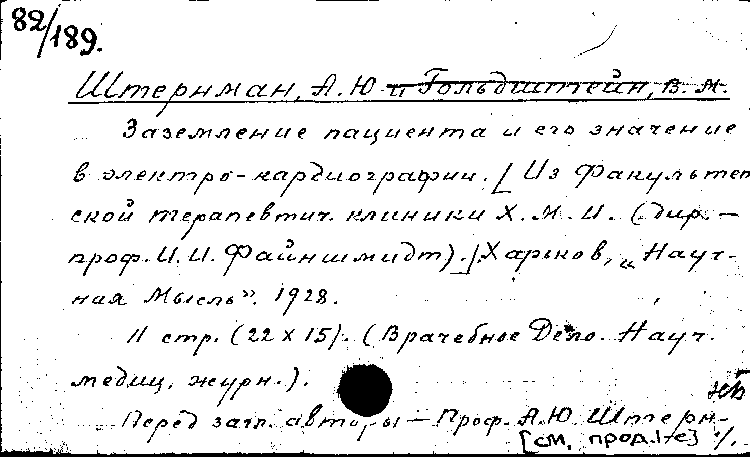 82/189.
Штернман, А.Ю и Гольдштейн, В. М.
Заземление пациента и его значение
в электро-кардиографии. [Из факультет
ской терапевтич. клиники Х. М. И. (дир. –
проф. И. И. Файншмидт).] Харьков, „Науч-
ная Мысль". 1928.
11 стр. (22 х 15). (Врачебное Дело. Науч.
медиц. журн.).
Перед загл. авторы – Проф. А.Ю. Штерн-
[см. прод. 1-е] ·/.